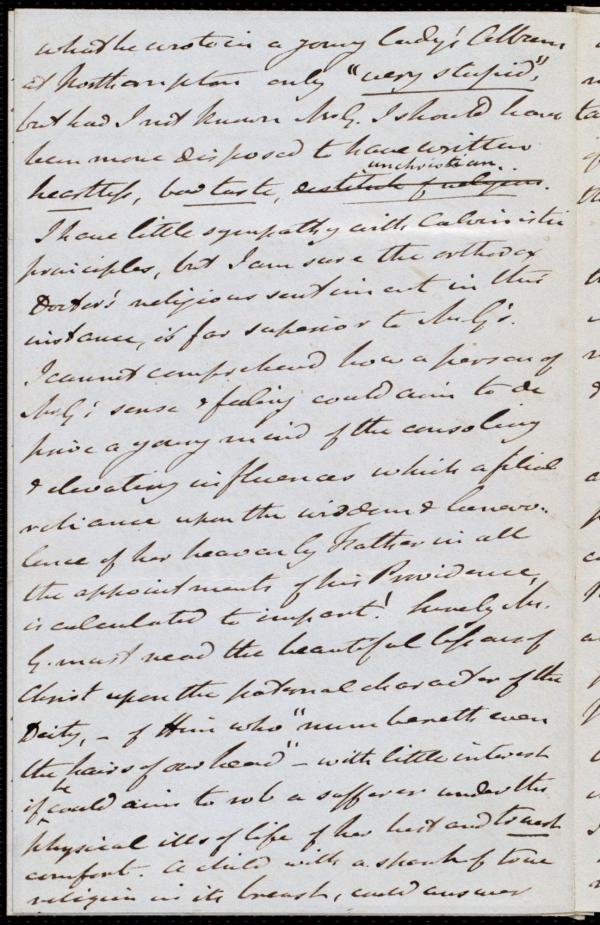 what he wrote in a young lady's Album
at Northampton only "very stupid",
but had I not known Mr G. I should have
been more disposed to have written
unchristian.
heartless, bad taste, destitute of religion.
I have little sympathy with Calvinistic
principles, but I am sure the orthodox
Doctor's religious sentiment in this
instance, is far superior to Mr G's.
I cannot comprehend how a person of
Mr G's sense & feeling could aim to de
prive a young mind of the consoling
& elevating influences which a filial
reliance upon the wisdom & benevo-
lence of her heavenly Father in all
the appointments of his Providence,
is calculated to impart! Surely Mr.
G. must read the beautiful lessons of
Christ upon the paternal character of the
Deity, – of Him who "numbereth even
the hairs of our head" – with little interest
if he could aim to rob a sufferer under the
physical ills of life of her best and truest
comfort. A child with a spark of true
religion in its breast, could answer